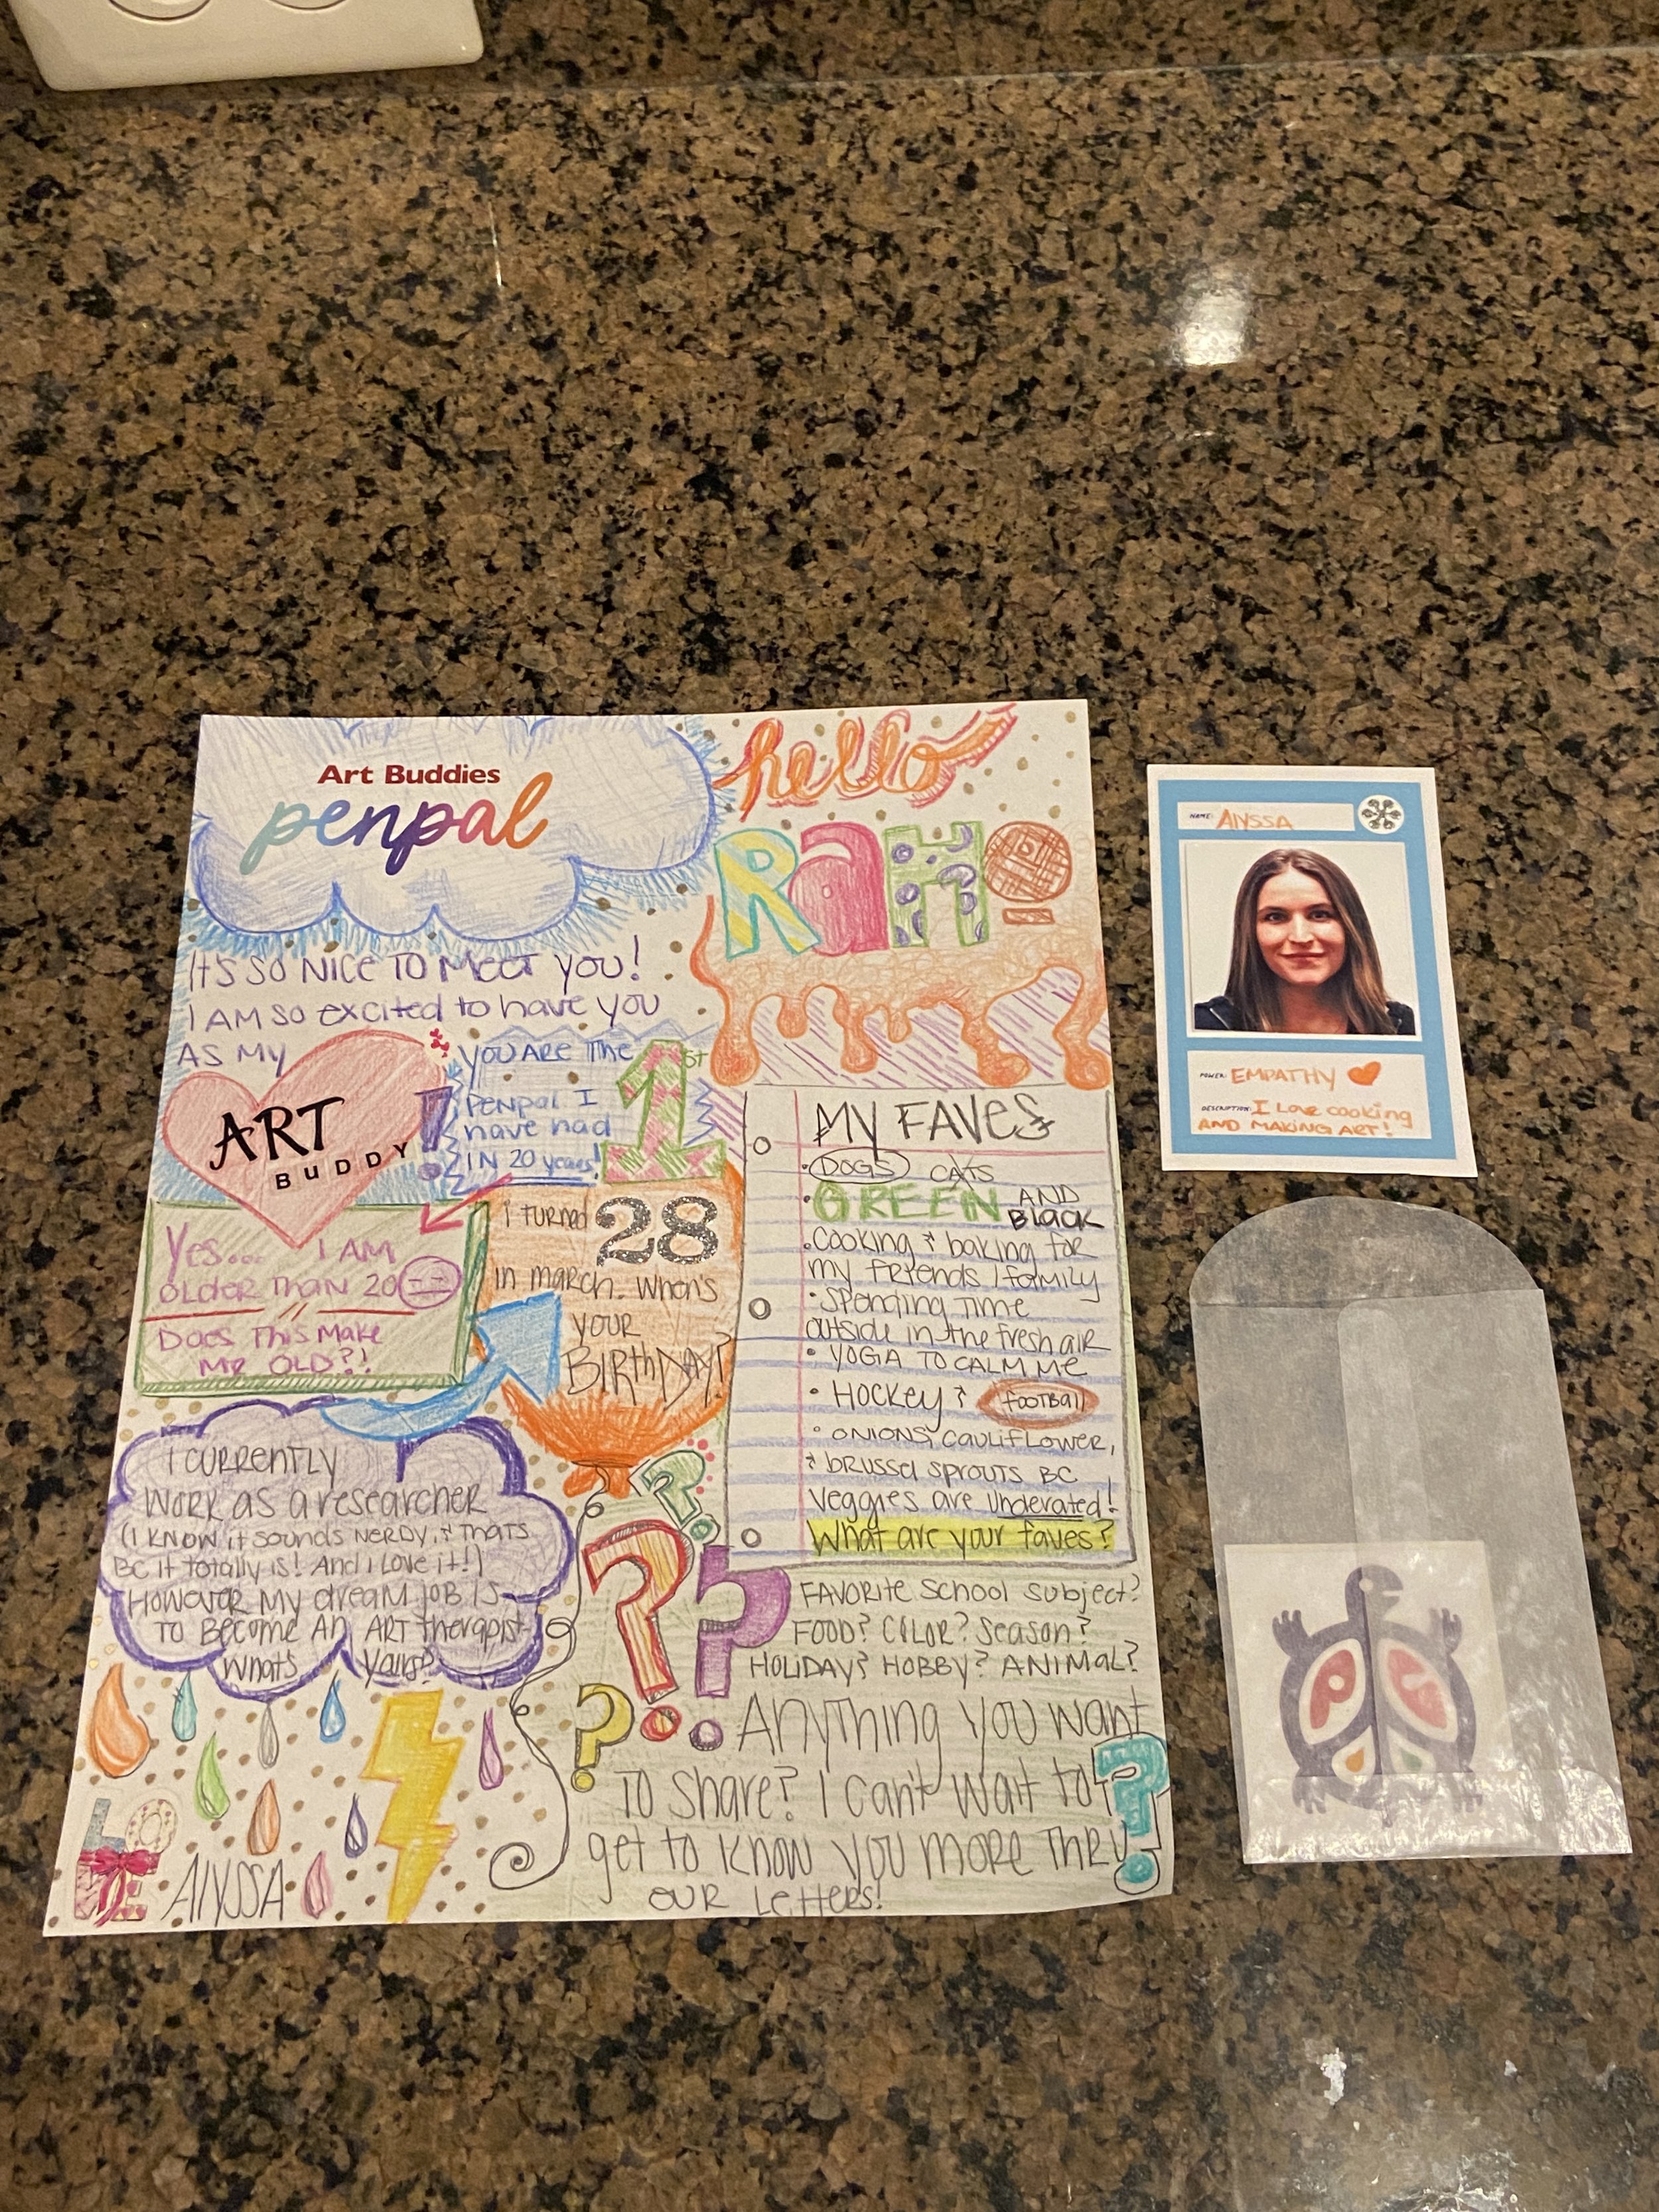 Art Buddies
penpal
hello
RaMO
It's so nice to meet you!
I am so excited to have you
as my
ART
BUDDY
!
You are the 1st
penpal I
have had
in 20 years!
Yes.... I am
older than 20
Does this make
me OLD?!
I turned 28
in march. When's
your
Birthday?
I currently
work as a researcher
(I know it sounds nerdy, & thats
bc it totally is! And i love it!)
However my dream job is
to become an art therapist
whats yours?
LOVE
Alyssa
My Faves
• Dogs cats
• GREEN and
Black
• cooking & baking for
my friends / family
• Spending time
outside in the fresh air
• Yoga to calm me
• Hockey & football
• onions, cauliflower,
& brussel sprouts bc
veggies are underated!
What are your faves?
Favorite school subject?
Food? Color? Season?
Holiday? Hobby? Animal?
Anything you want
to share? I can't wait to
get to know you more thru
our letters!
Name: Alyssa
Power: Empathy
Description: I love cooking
and making art!